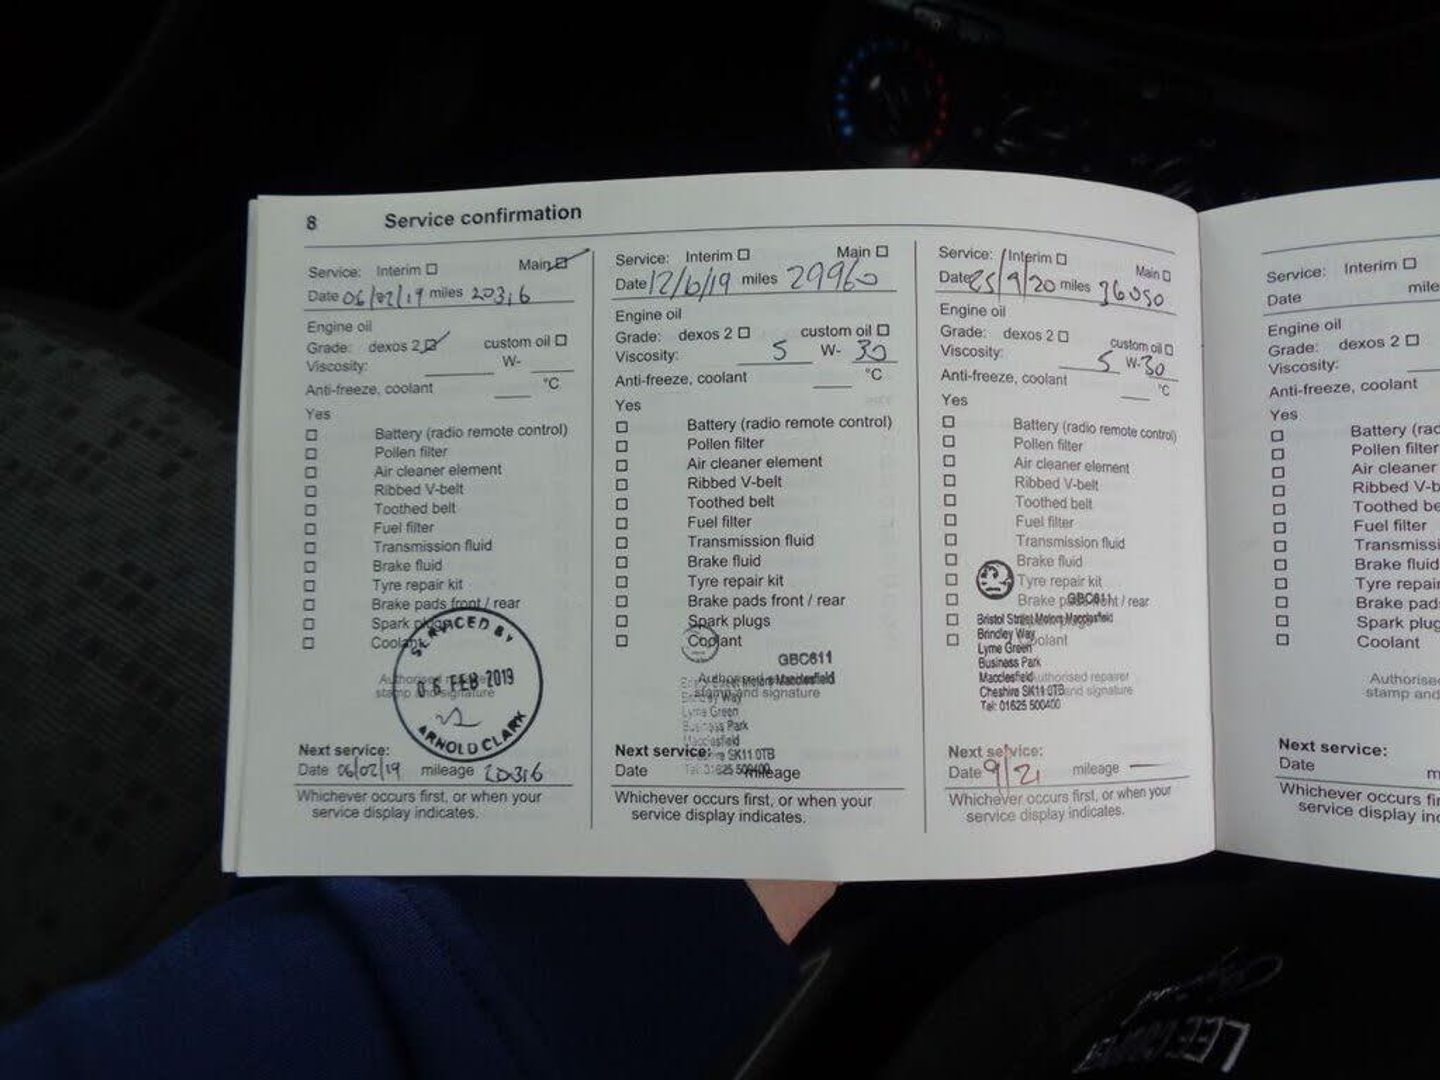 8 Service confirmation
Service: Interim Main
Date 06/02/19 miles 20316
Engine oil
Grade: dexos 2 custom oil
Viscosity: W-
Anti-freeze, coolant °C
Yes
Battery (radio remote control)
Pollen filter
Air cleaner element
Ribbed V-belt
Toothed belt
Fuel filter
Transmission fluid
Brake fluid
Tyre repair kit
Brake pads front / rear
Spark plugs
Coolant
SERVICED BY
06 FEB 2019
ARNOLD CLARK
Authorised repairer
stamp and signature
Next service:
Date 06/02/19 mileage 20316
Whichever occurs first, or when your
service display indicates.
Service: Interim Main
Date 12/6/19 miles 29960
Engine oil
Grade: dexos 2 custom oil
Viscosity: 5 W- 30
Anti-freeze, coolant °C
Yes
Battery (radio remote control)
Pollen filter
Air cleaner element
Ribbed V-belt
Toothed belt
Fuel filter
Transmission fluid
Brake fluid
Tyre repair kit
Brake pads front / rear
Spark plugs
Coolant
GBC611
Authorised repairer
stamp and signature
Street Motors Macclesfield
Way
Lyme Green
Business Park
Macclesfield
SK11 0TB
Tel: 01625 500400
Next service:
Date mileage
Whichever occurs first, or when your
service display indicates.
Service: Interim Main
Date 25/9/20 miles 36050
Engine oil
Grade: dexos 2 custom oil
Viscosity: 5 W-30
Anti-freeze, coolant °C
Yes
Battery (radio remote control)
Pollen filter
Air cleaner element
Ribbed V-belt
Toothed belt
Fuel filter
Transmission fluid
Brake fluid
Tyre repair kit
Brake pads front / rear
GBC611
Bristol Street Motors Macclesfield
Brindley Way
Coolant
Lyme Green
Business Park
Macclesfield
Authorised repairer
Cheshire SK11 0TB
stamp and signature
Tel: 01625 500400
Next service:
Date 9/21 mileage —
Whichever occurs first, or when your
service display indicates.
Service: Interim
Date mile
Engine oil
Grade: dexos 2
Viscosity:
Anti-freeze, coolant
Yes
Battery (rad
Pollen filter
Air cleaner
Ribbed V-b
Toothed be
Fuel filter
Transmissi
Brake fluid
Tyre repair
Brake pads
Spark plug
Coolant
Authorise
stamp and
Next service:
Date m
Whichever occurs fir
service display ind
LEE